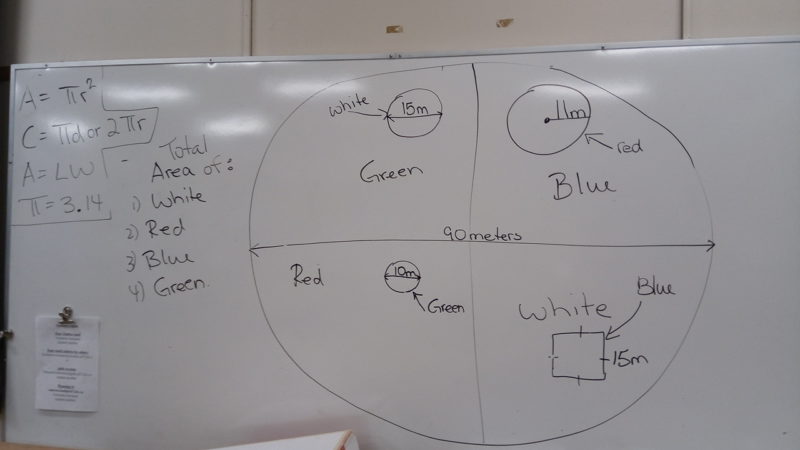 A = πr²
C = πd or 2πr
A = LW
π = 3.14
Total
Area of:
1) White
2) Red
3) Blue
4) Green
white
15m
Green
11m
red
Blue
90 meters
Red
10m
Green
White
Blue
15m